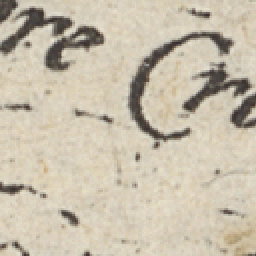 re Cro